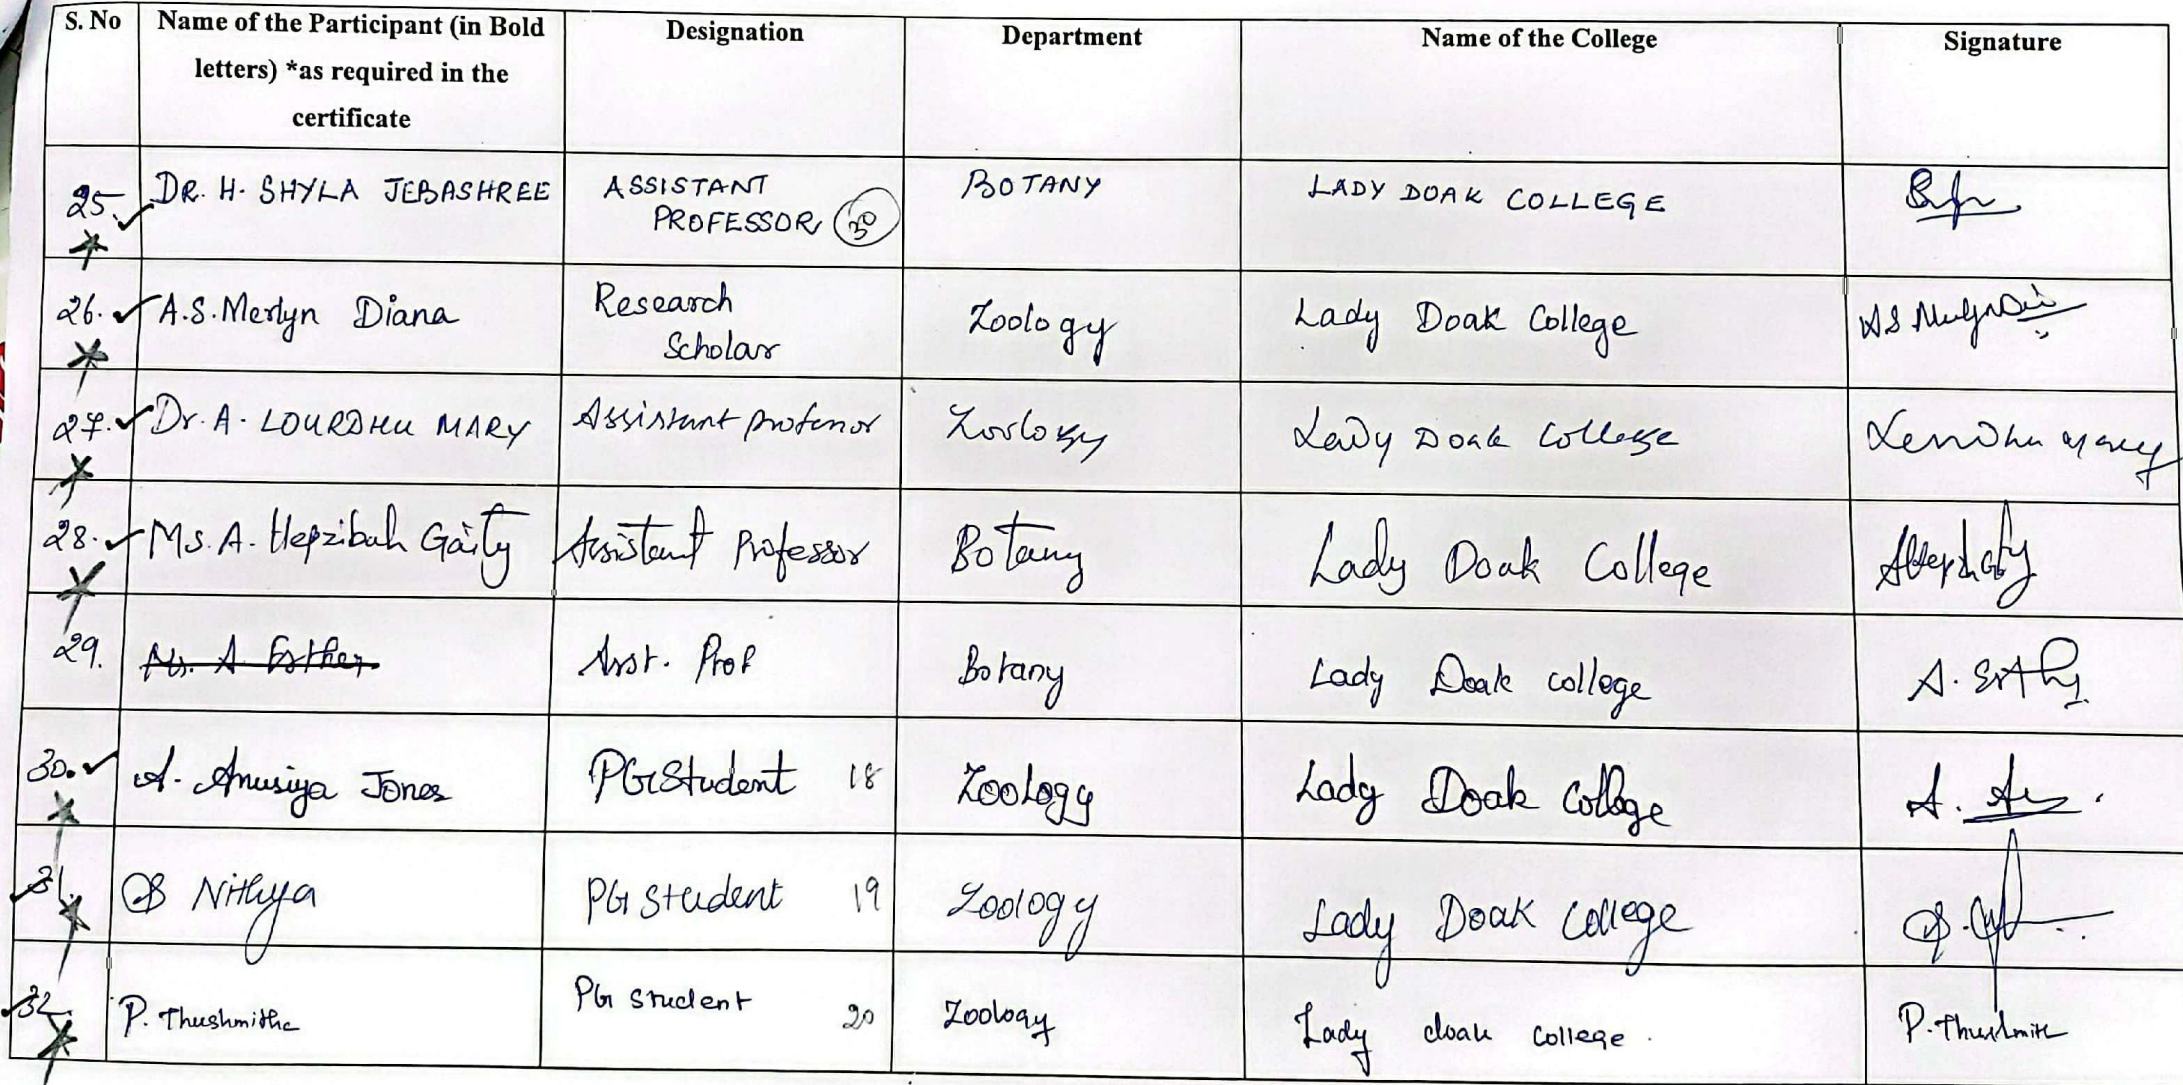 S. No Name of the Participant (in Bold letters) *as required in the certificate Designation Department Name of the College Signature
25. DR. H. SHYLA JEBASHREE ASSISTANT PROFESSOR 30 BOTANY LADY DOAK COLLEGE
26. A.S. Merlyn Diana Research Scholar Zoology Lady Doak College
27. Dr. A. LOURDHU MARY Assistant professor Zoology Lady Doak College
28. Ms. A. Hepzibah Gaity Assistant Professor Botany Lady Doak College
29. Ms. A Esther Asst. Prof Botany Lady Doak college
30. A. Anusiya Jones PG Student 18 Zoology Lady Doak College
31. Nithya PG student 19 Zoology Lady Doak College
32. P. Thushmitha PG student 20 Zoology Lady doak college. P. Thushmith